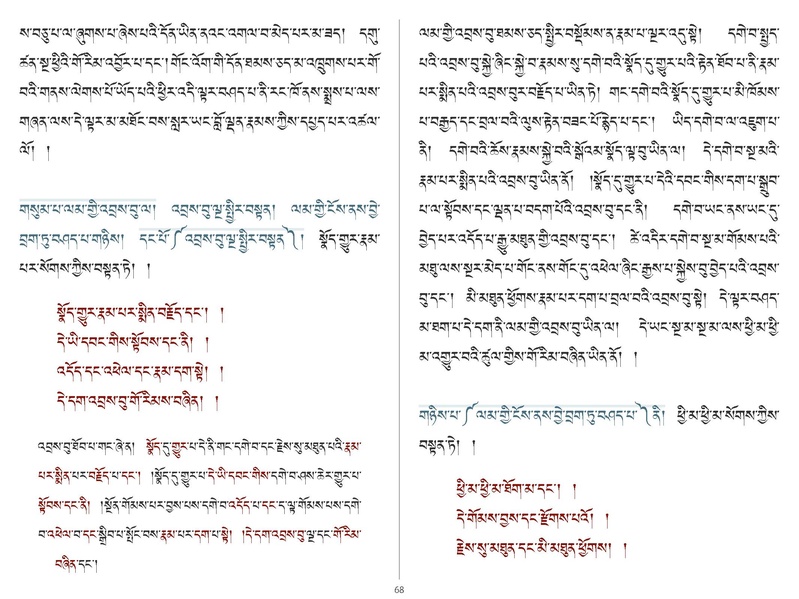 ས་བཅུ་པ་ལ་ཞུགས་པ་ཞེས་པའི་དོན་ཡིན་ནའང་འགལ་བ་མེད་པར་མ་ཟད། དགུ་
ཚན་སྔ་ཕྱིའི་གོ་རིམ་འབྱོར་པ་དང་། གོང་འོག་གི་དོན་ཐམས་ཅད་མ་འཁྲུགས་པར་གོ་
བའི་གནས་ལེགས་པོ་ཡོད་པའི་ཕྱིར་འདི་ལྟར་བཤད་པ་ནི་རང་ཁོ་ནས་སྨྲས་པ་ལས་
གཞན་ལས་དེ་ལྟར་མ་མཐོང་བས་སླར་ཡང་བློ་ལྡན་རྣམས་ཀྱིས་དཔྱད་པར་འཚལ་
ལོ། །
གསུམ་པ་ལམ་གྱི་འབྲས་བུ་ལ། འབྲས་བུ་ལྔ་སྤྱིར་བསྟན། ལམ་གྱི་ངོས་ནས་བྱེ་
བྲག་ཏུ་བཤད་པ་གཉིས། དང་པོ་༼འབྲས་བུ་ལྔ་སྤྱིར་བསྟན་༽། སྣོད་གྱུར་རྣམ་
པར་སོགས་ཀྱིས་བསྟན་ཏེ། །
སྣོད་གྱུར་རྣམ་པར་སྨིན་བརྗོད་དང་། །
དེ་ཡི་དབང་གིས་སྟོབས་དང་ནི། །
འདོད་དང་འཕེལ་དང་རྣམ་དག་སྟེ། །
དེ་དག་འབྲས་བུ་གོ་རིམས་བཞིན། །
འབྲས་བུ་ཐོབ་པ་གང་ཞེ་ན། སྣོད་དུ་གྱུར་པ་དེ་ནི་གང་དགེ་བ་དང་རྗེས་སུ་མཐུན་པའི་རྣམ་
པར་སྨིན་པར་བརྗོད་པ་དང་། །སྣོད་དུ་གྱུར་པ་དེ་ཡི་དབང་གིས་དགེ་བ་ཤས་ཆེར་གྱུར་པ་
སྟོབས་དང་ནི། །སྔོན་གོམས་པར་བྱས་པས་དགེ་བ་འདོད་པ་དང་ད་ལྟ་གོམས་པས་དགེ་
བ་འཕེལ་བ་དང་སྒྲིབ་པ་སྤོང་བས་རྣམ་པར་དག་པ་སྟེ། །དེ་དག་འབྲས་བུ་ལྔ་དང་གོ་རིམ་
བཞིན་དང་།
ལམ་གྱི་འབྲས་བུ་ཐམས་ཅད་སྤྱིར་བསྡོམས་ན་རྣམ་པ་ལྔར་འདུ་སྟེ། དགེ་བ་སྤྱད་
པའི་འབྲས་བུ་སྐྱེ་ཞིང་སྐྱེ་བ་རྣམས་སུ་དགེ་བའི་སྣོད་དུ་གྱུར་པའི་རྟེན་ཐོབ་པ་ནི་རྣམ་
པར་སྨིན་པའི་འབྲས་བུར་བརྗོད་པ་ཡིན་ཏེ། གང་དགེ་བའི་སྣོད་དུ་གྱུར་པ་མི་ཁོམས་
པ་བརྒྱད་དང་བྲལ་བའི་ལུས་རྟེན་བཟང་པོ་རྙེད་པ་དང་། ཡིད་དགེ་བ་ལ་འཇུག་པ་
ནི། དགེ་བའི་ཆོས་རྣམས་སྐྱེ་བའི་སྒོའམ་སྣོད་ལྟ་བུ་ཡིན་ལ། དེ་དགེ་བ་སྔ་མའི་
རྣམ་པར་སྨིན་པའི་འབྲས་བུ་ཡིན་ནོ། །སྣོད་དུ་གྱུར་པ་དེའི་དབང་གིས་དག་པ་སྒྲུབ་
པ་ལ་སྟོབས་དང་ལྡན་པ་བདག་པོའི་འབྲས་བུ་དང་ནི། དགེ་བ་ཡང་ནས་ཡང་དུ་
བྱེད་པར་འདོད་པ་རྒྱུ་མཐུན་གྱི་འབྲས་བུ་དང་། ཚེ་འདིར་དགེ་བ་སྔ་མ་གོམས་པའི་
མཐུ་ལས་སྔར་མེད་པ་གོང་ནས་གོང་དུ་འཕེལ་ཞིང་རྒྱས་པ་སྐྱེས་བུ་བྱེད་པའི་འབྲས་
བུ་དང་། མི་མཐུན་ཕྱོགས་རྣམ་པར་དག་པ་བྲལ་བའི་འབྲས་བུ་སྟེ། དེ་ལྟར་བཤད་
མ་ཐག་པ་དེ་དག་ནི་ལམ་གྱི་འབྲས་བུ་ཡིན་ལ། དེ་ཡང་སྔ་མ་སྔ་མ་ལས་ཕྱི་མ་ཕྱི་
མ་འགྱུར་བའི་ཚུལ་གྱིས་གོ་རིམ་བཞིན་ཡིན་ནོ། །
གཉིས་པ་༼ལམ་གྱི་ངོས་ནས་བྱེ་བྲག་ཏུ་བཤད་པ་༽ནི། ཕྱི་མ་ཕྱི་མ་སོགས་ཀྱིས་
བསྟན་ཏེ། །
ཕྱི་མ་ཕྱི་མ་ཐོག་མ་དང་། །
དེ་གོམས་བྱས་དང་རྫོགས་པའོ། །
རྗེས་སུ་མཐུན་དང་མི་མཐུན་ཕྱོགས། །
68